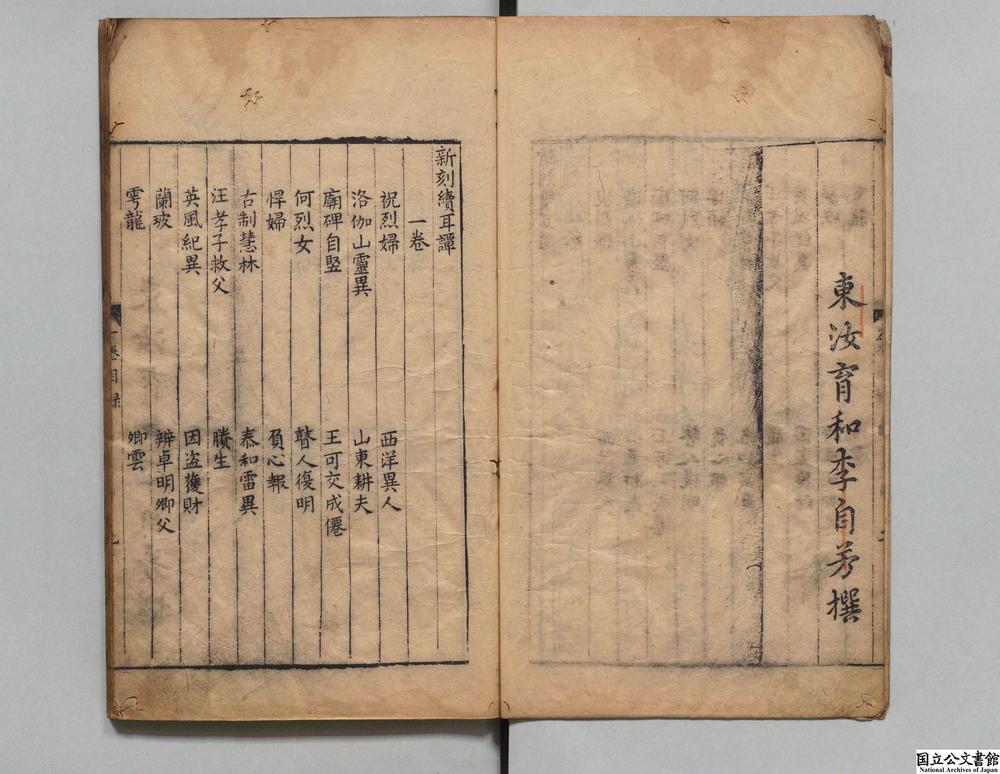 東汝育和李自芳撰
新刻續耳譚
一卷
祝烈婦 西洋異人
洛伽山靈異 山東耕夫
廟碑自竪 王可交成僊
何烈女 瞽人復明
悍婦 負心報
古制慧林 泰和雷異
汪孝子救父 勝生
英風紀異 因盗獲財
蘭玻 辨卓明卿父
雩龍 卿雲
一卷目録
国立公文書館
National Archives of Japan